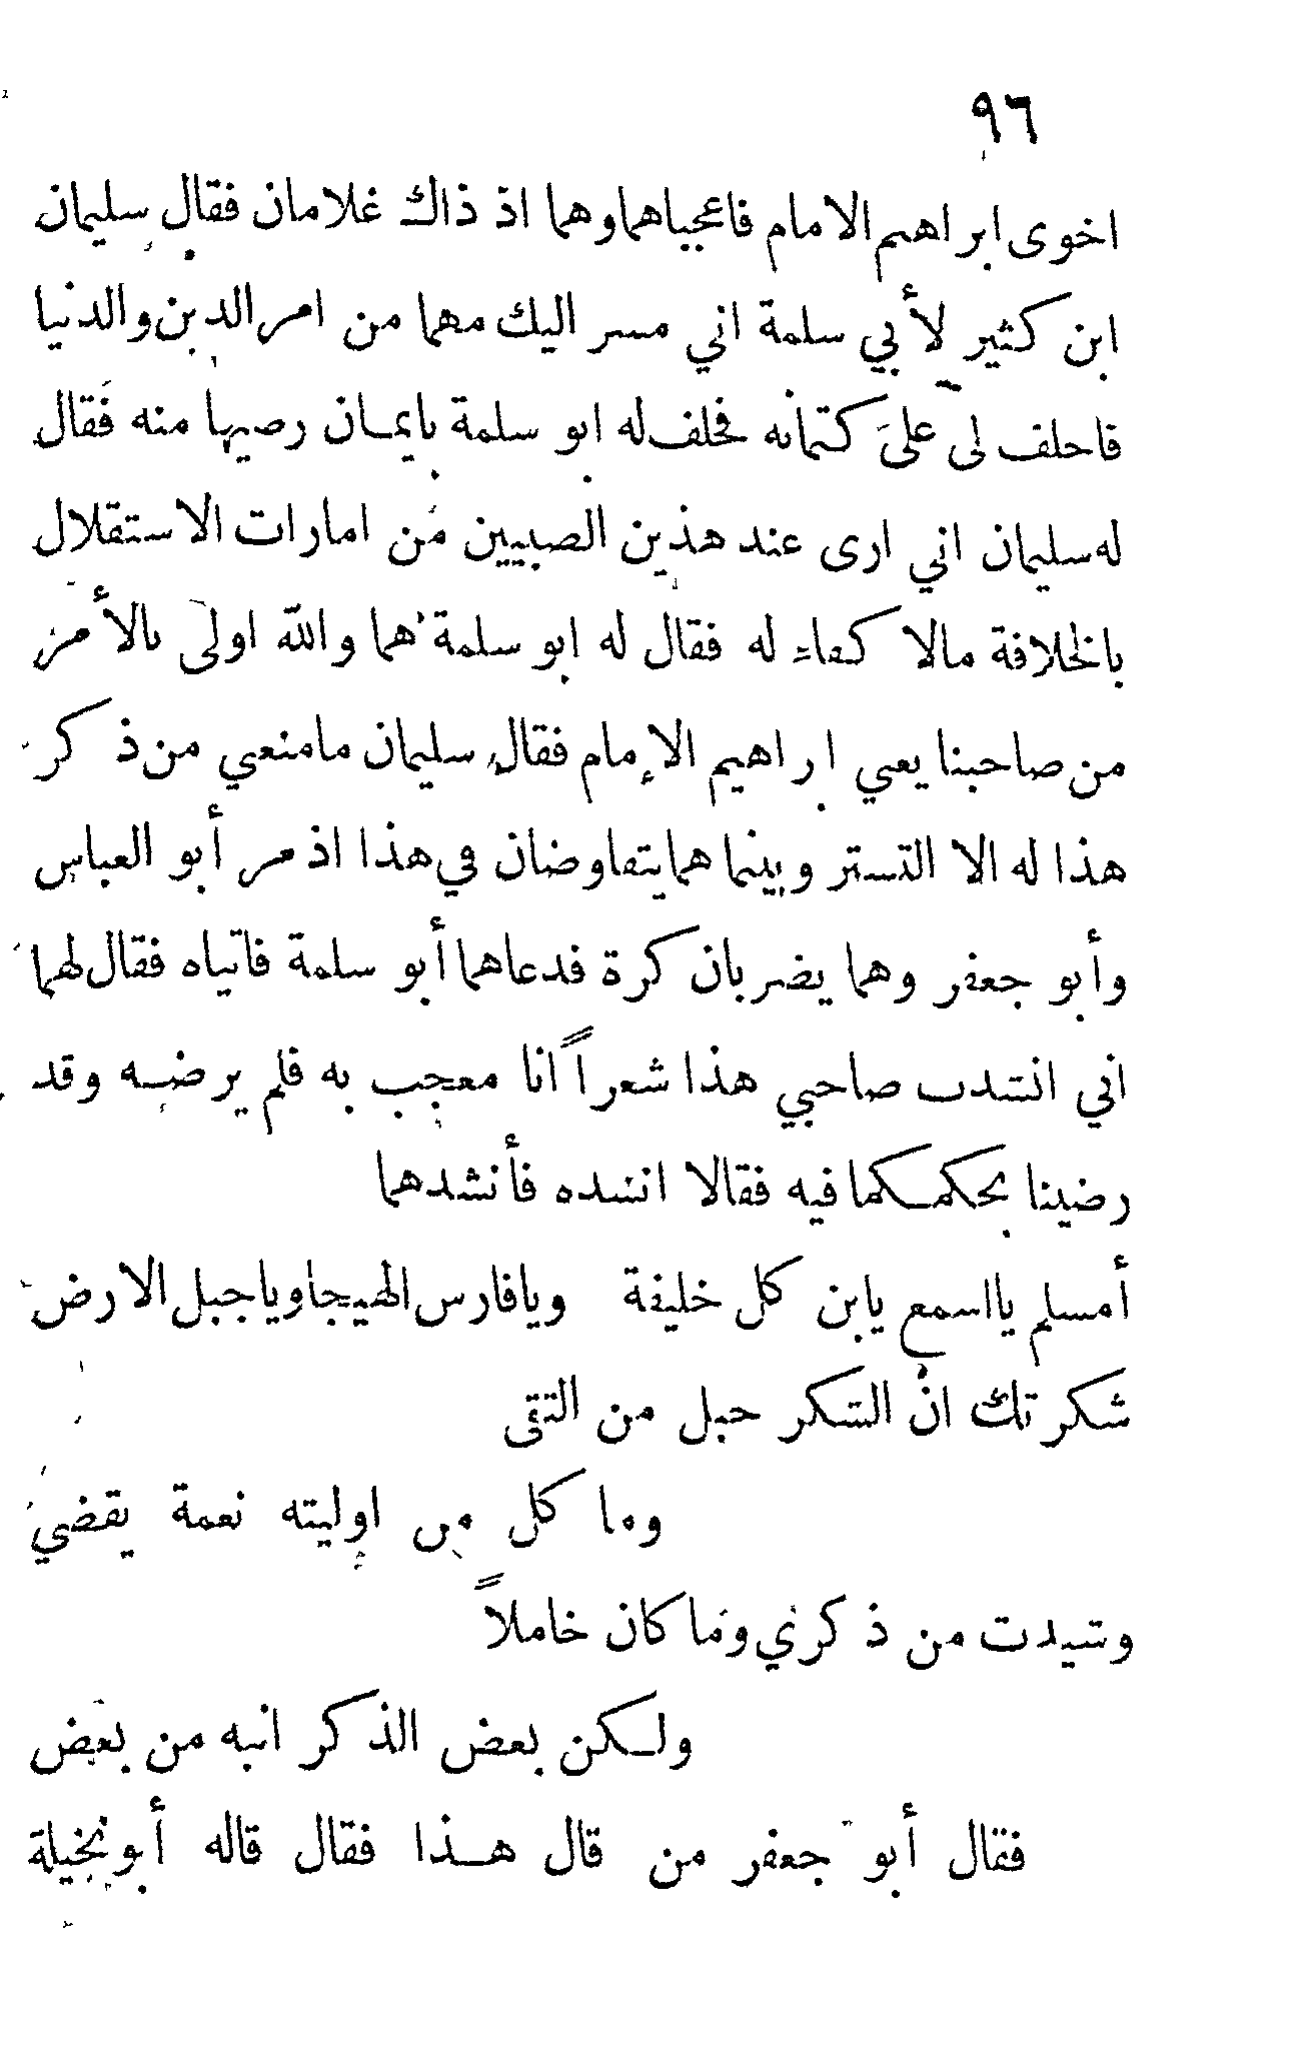 ٩٦
اخوى ابراهيم الامام فاعجباهما وهما اذ ذاك غلامان فقال سليمان
ابن كثير لأبي سلمة اني مسر اليك مهما من امر الدين والدنيا
فاحلف لى على كتمانه فحلف له ابو سلمة بايمان رضيها منه فقال
له سليمان اني ارى عند هذين الصبيين من امارات الاستقلال
بالخلافة مالا كفاء له فقال له ابو سلمة هما والله اولى بالأمر
من صاحبنا يعي ابراهيم الإمام فقال سليمان مامنعي من ذكر
هذا له الا التستر وبينما هما يتفاوضان في هذا اذ مر أبو العباس
وأبو جعفر وهما يضربان كرة فدعاهما أبو سلمة فاتياه فقال لهما
اني انشدت صاحبي هذا شعراً انا معجب به فلم يرضه وقد
رضينا بحكمكما فيه فقالا انشده فأنشدهما
أمسلم يااسمع يابن كل خليفة ويافارس الهيجا وياجبل الارض
شكرتك ان الشكر حبل من التقى
وما كل من اوليته نعمة يقضي
وشيدت من ذكري وما كان خاملاً
ولكن بعض الذكر انبه من بعض
فقال أبو جعفر من قال هذا فقال قاله أبو نخيلة